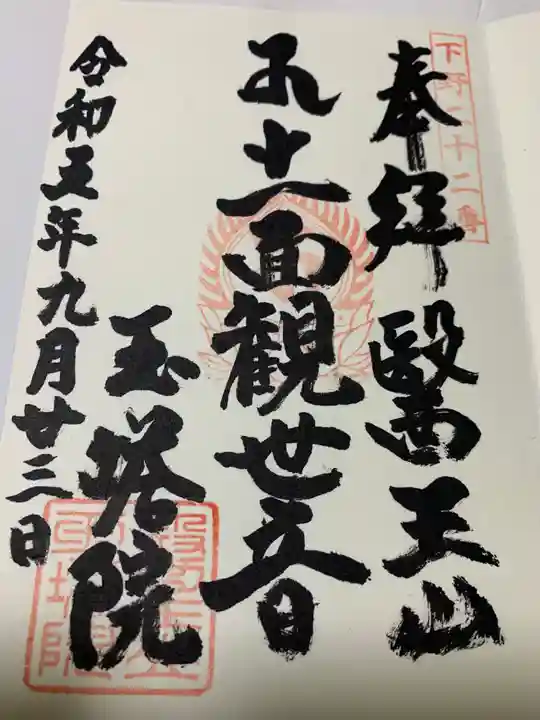 下野三十二番
奉拝 醫王山
十一面観世音
玉塔院
令和五年九月廿三日